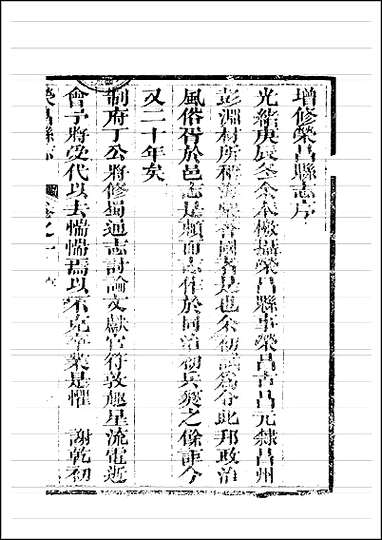 增修榮昌縣志序
光緒庚辰冬余奉檄攝榮昌縣事榮昌古昌元隸昌州
彭淵材所稱海棠香國者是也余初試為令此邦政治
風俗胥於邑志是賴而志作於同治初兵燹之餘距今
又二十年矣
制府丁公將修蜀通志討論文獻官符敦趣星流電逝
會予將受代以去惴惴焉以不克卒業是懼 謝乾初
榮昌縣志 卷之一 序